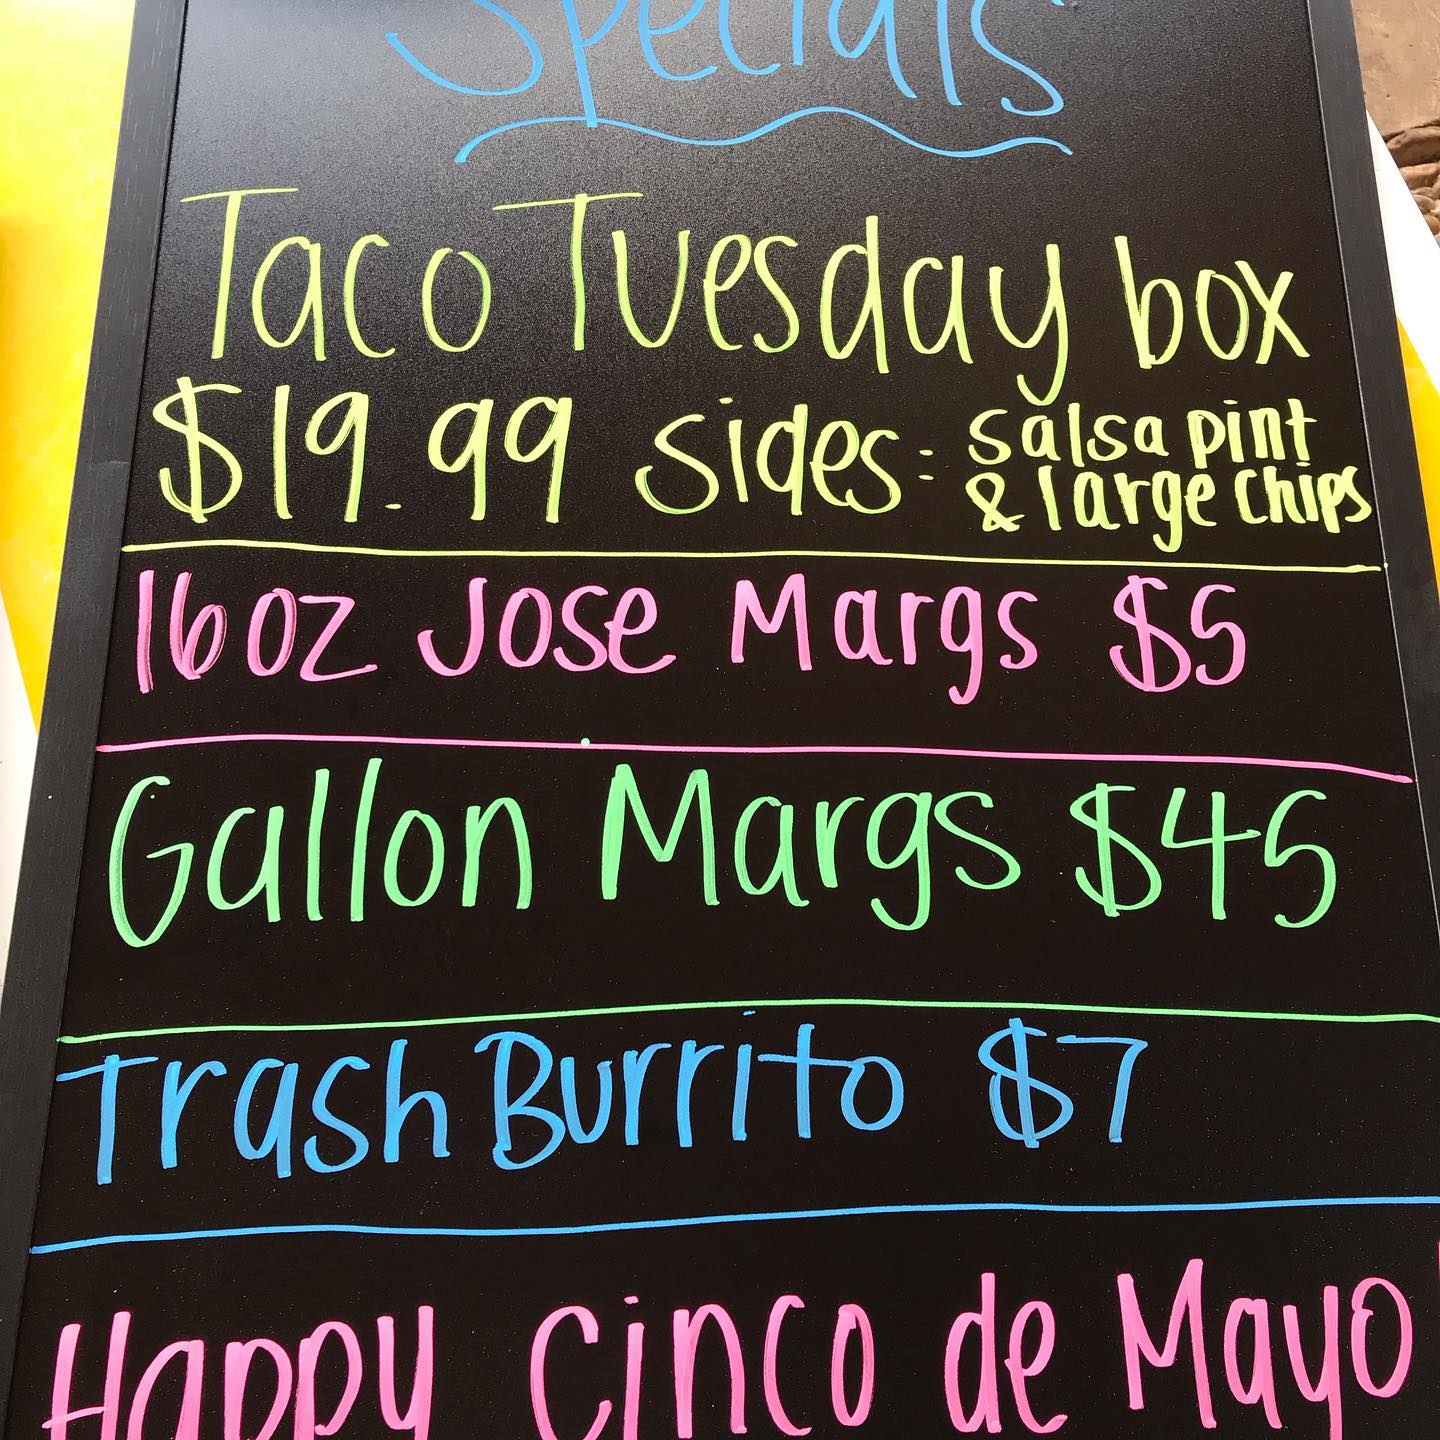 Specials
Taco Tuesday box
$19.99 Sides: Salsa pint
& large chips
16oz Jose Margs $5
Gallon Margs $45
Trash Burrito $7
Happy Cinco de Mayo!